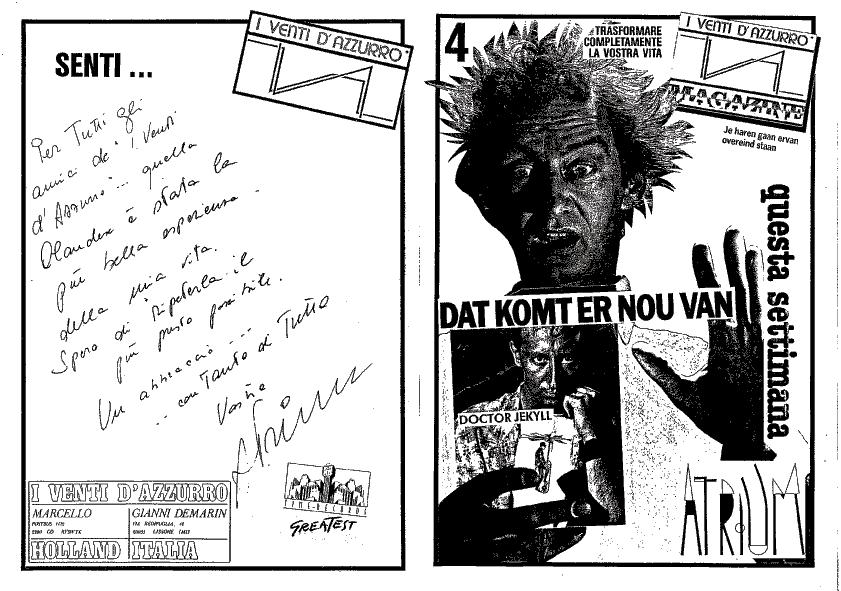 I VENTI D'AZZURRO
SENTI ...
Per Tutti gli
amici de' I Venti
d'Azzurro"... quella
Olandese è stata la
più bella esperienza
della mia vita.
Spero di ripeterla il
più presto possibile.
Un abbraccio ...
... con Tanto di Tutto
I VENTI D'AZZURRO
MARCELLO
GIANNI DEMARIN
HOLLAND
ITALIA
GREATEST
4
TRASFORMARE
COMPLETAMENTE
LA VOSTRA VITA
I VENTI D'AZZURRO
MAGAZINE
Je haren gaan ervan
overeind staan
questa settimana
DAT KOMT ER NOU VAN
DOCTOR JEKYLL
ATRIUM